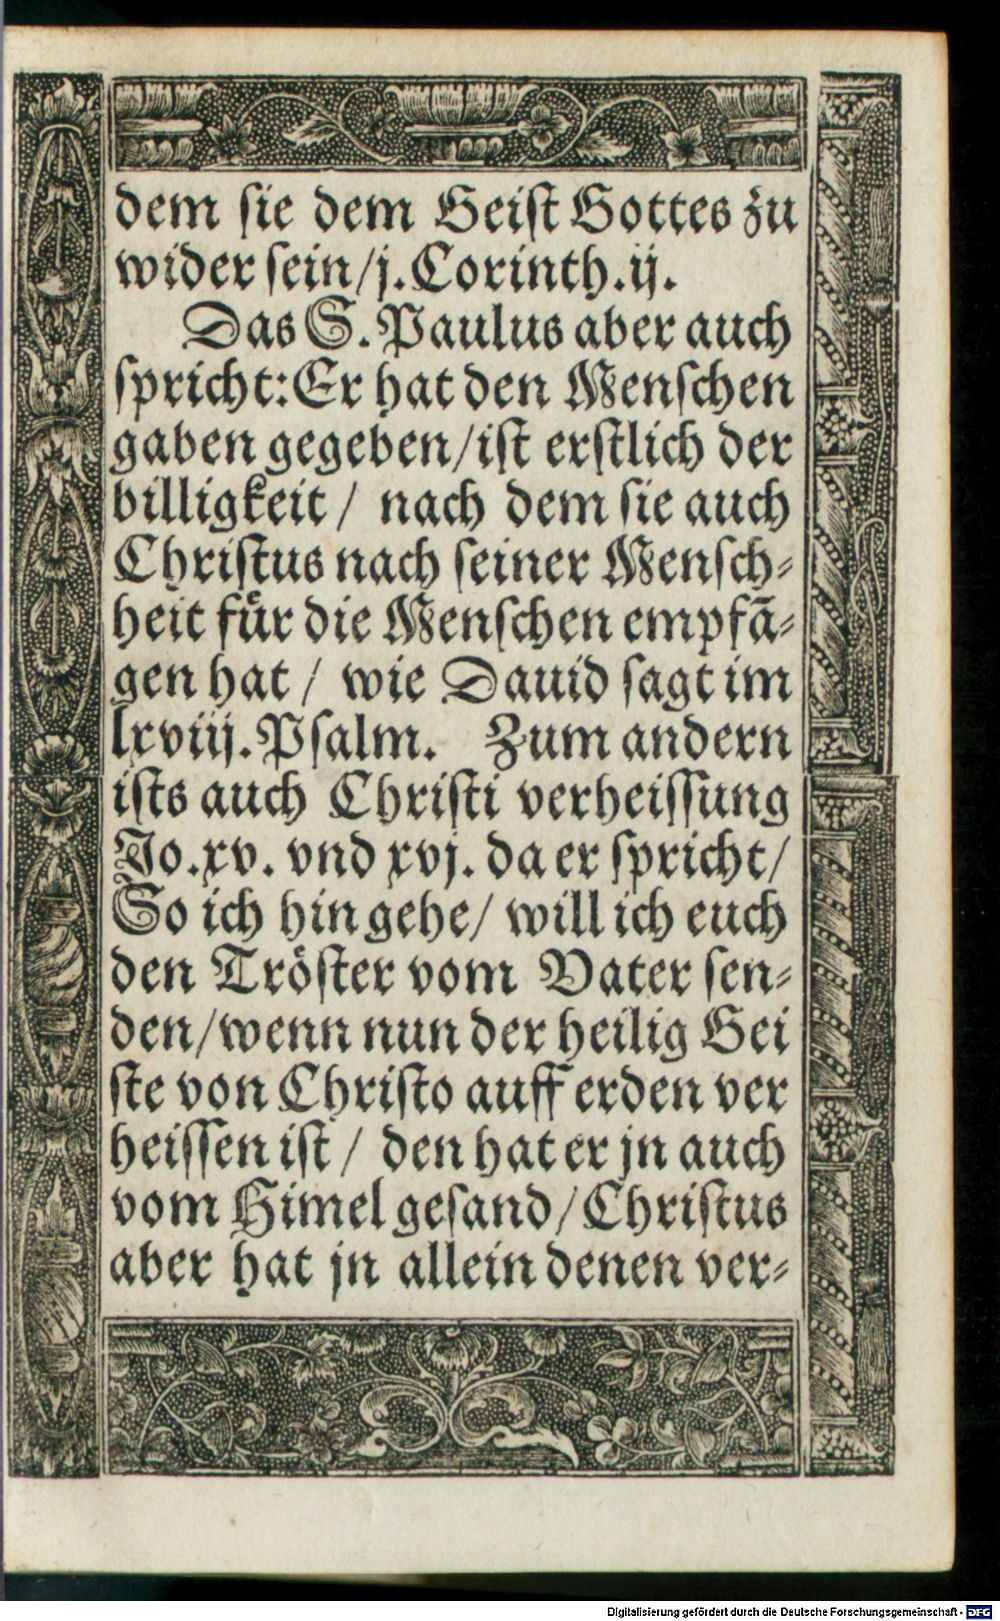 dem sie dem Geist Gottes zu
wider sein/j. Corinth.ij.
Das S. Paulus aber auch
spricht: Er hat den Menschen
gaben gegeben/ist erstlich der
billigkeit / nach dem sie auch
Christus nach seiner Mensch⸗
heit fuͤr die Menschen empfā⸗
gen hat / wie Dauid sagt im
lxviij. Psalm. Zum andern
ists auch Christi verheissung
Jo.xv. vnd xvj. da er spricht/
So ich hin gehe/ will ich euch
den Tröster vom Vater sen⸗
den/wenn nun der heilig Gei
ste von Christo auff erden ver
heissen ist / den hat er jn auch
vom Himel gesand/Christus
aber hat jn allein denen ver⸗
Digitalisierung gefördert durch die Deutsche Forschungsgemeinschaft - DFG